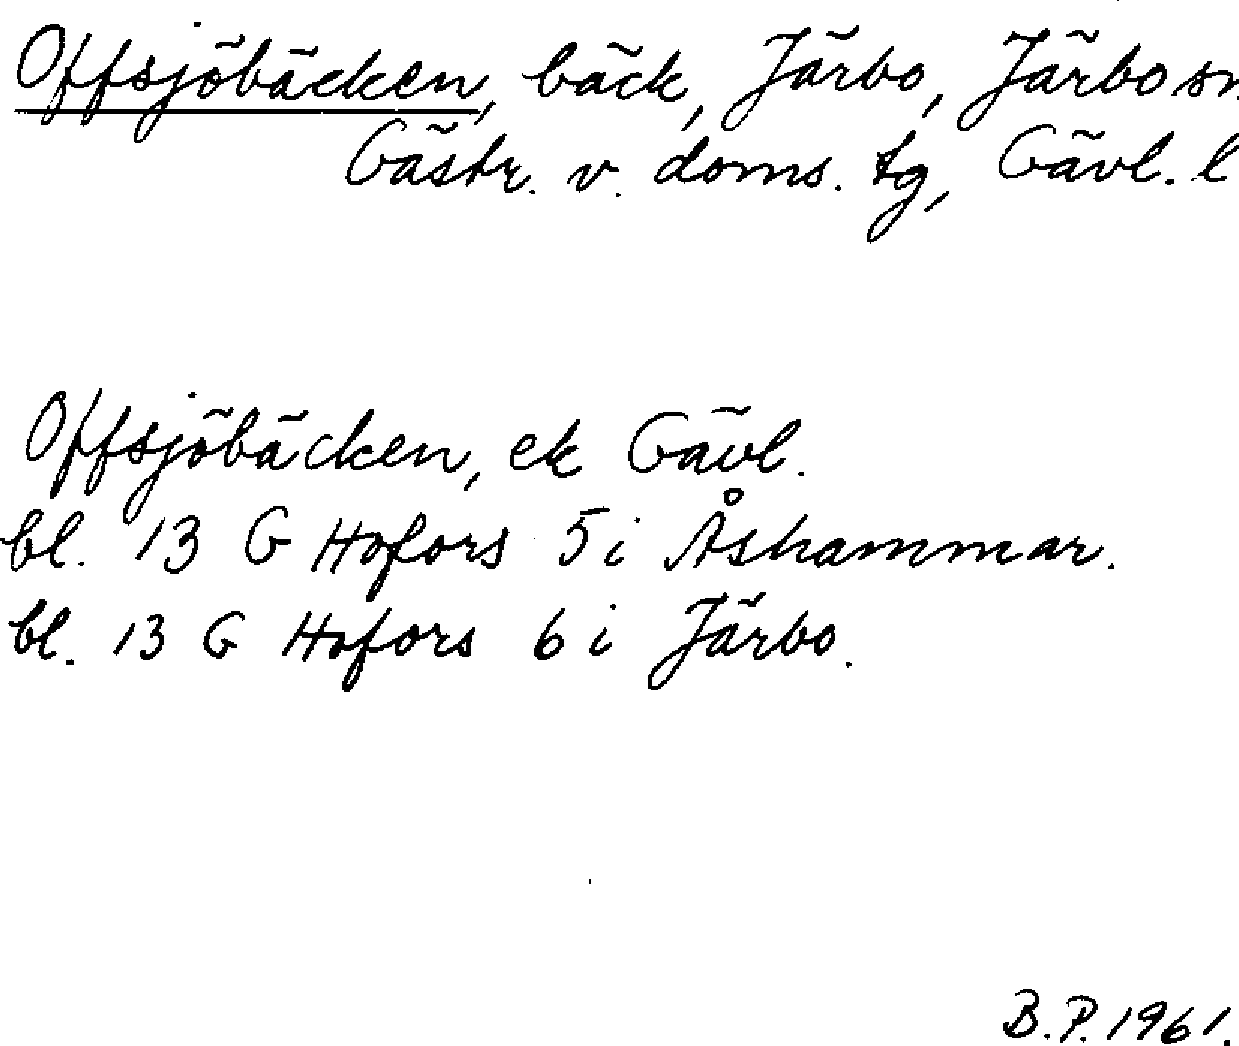 Offsjöbäcken, bäck, Järbo, Järbo sn
Gästr. v. doms. tg, Gävl. l
Offsjöbäcken, ek Gävl.
bl. 13 G Hofors 5 i Åshammar.
bl. 13 G Hofors 6 i Järbo.
B.P. 1961.